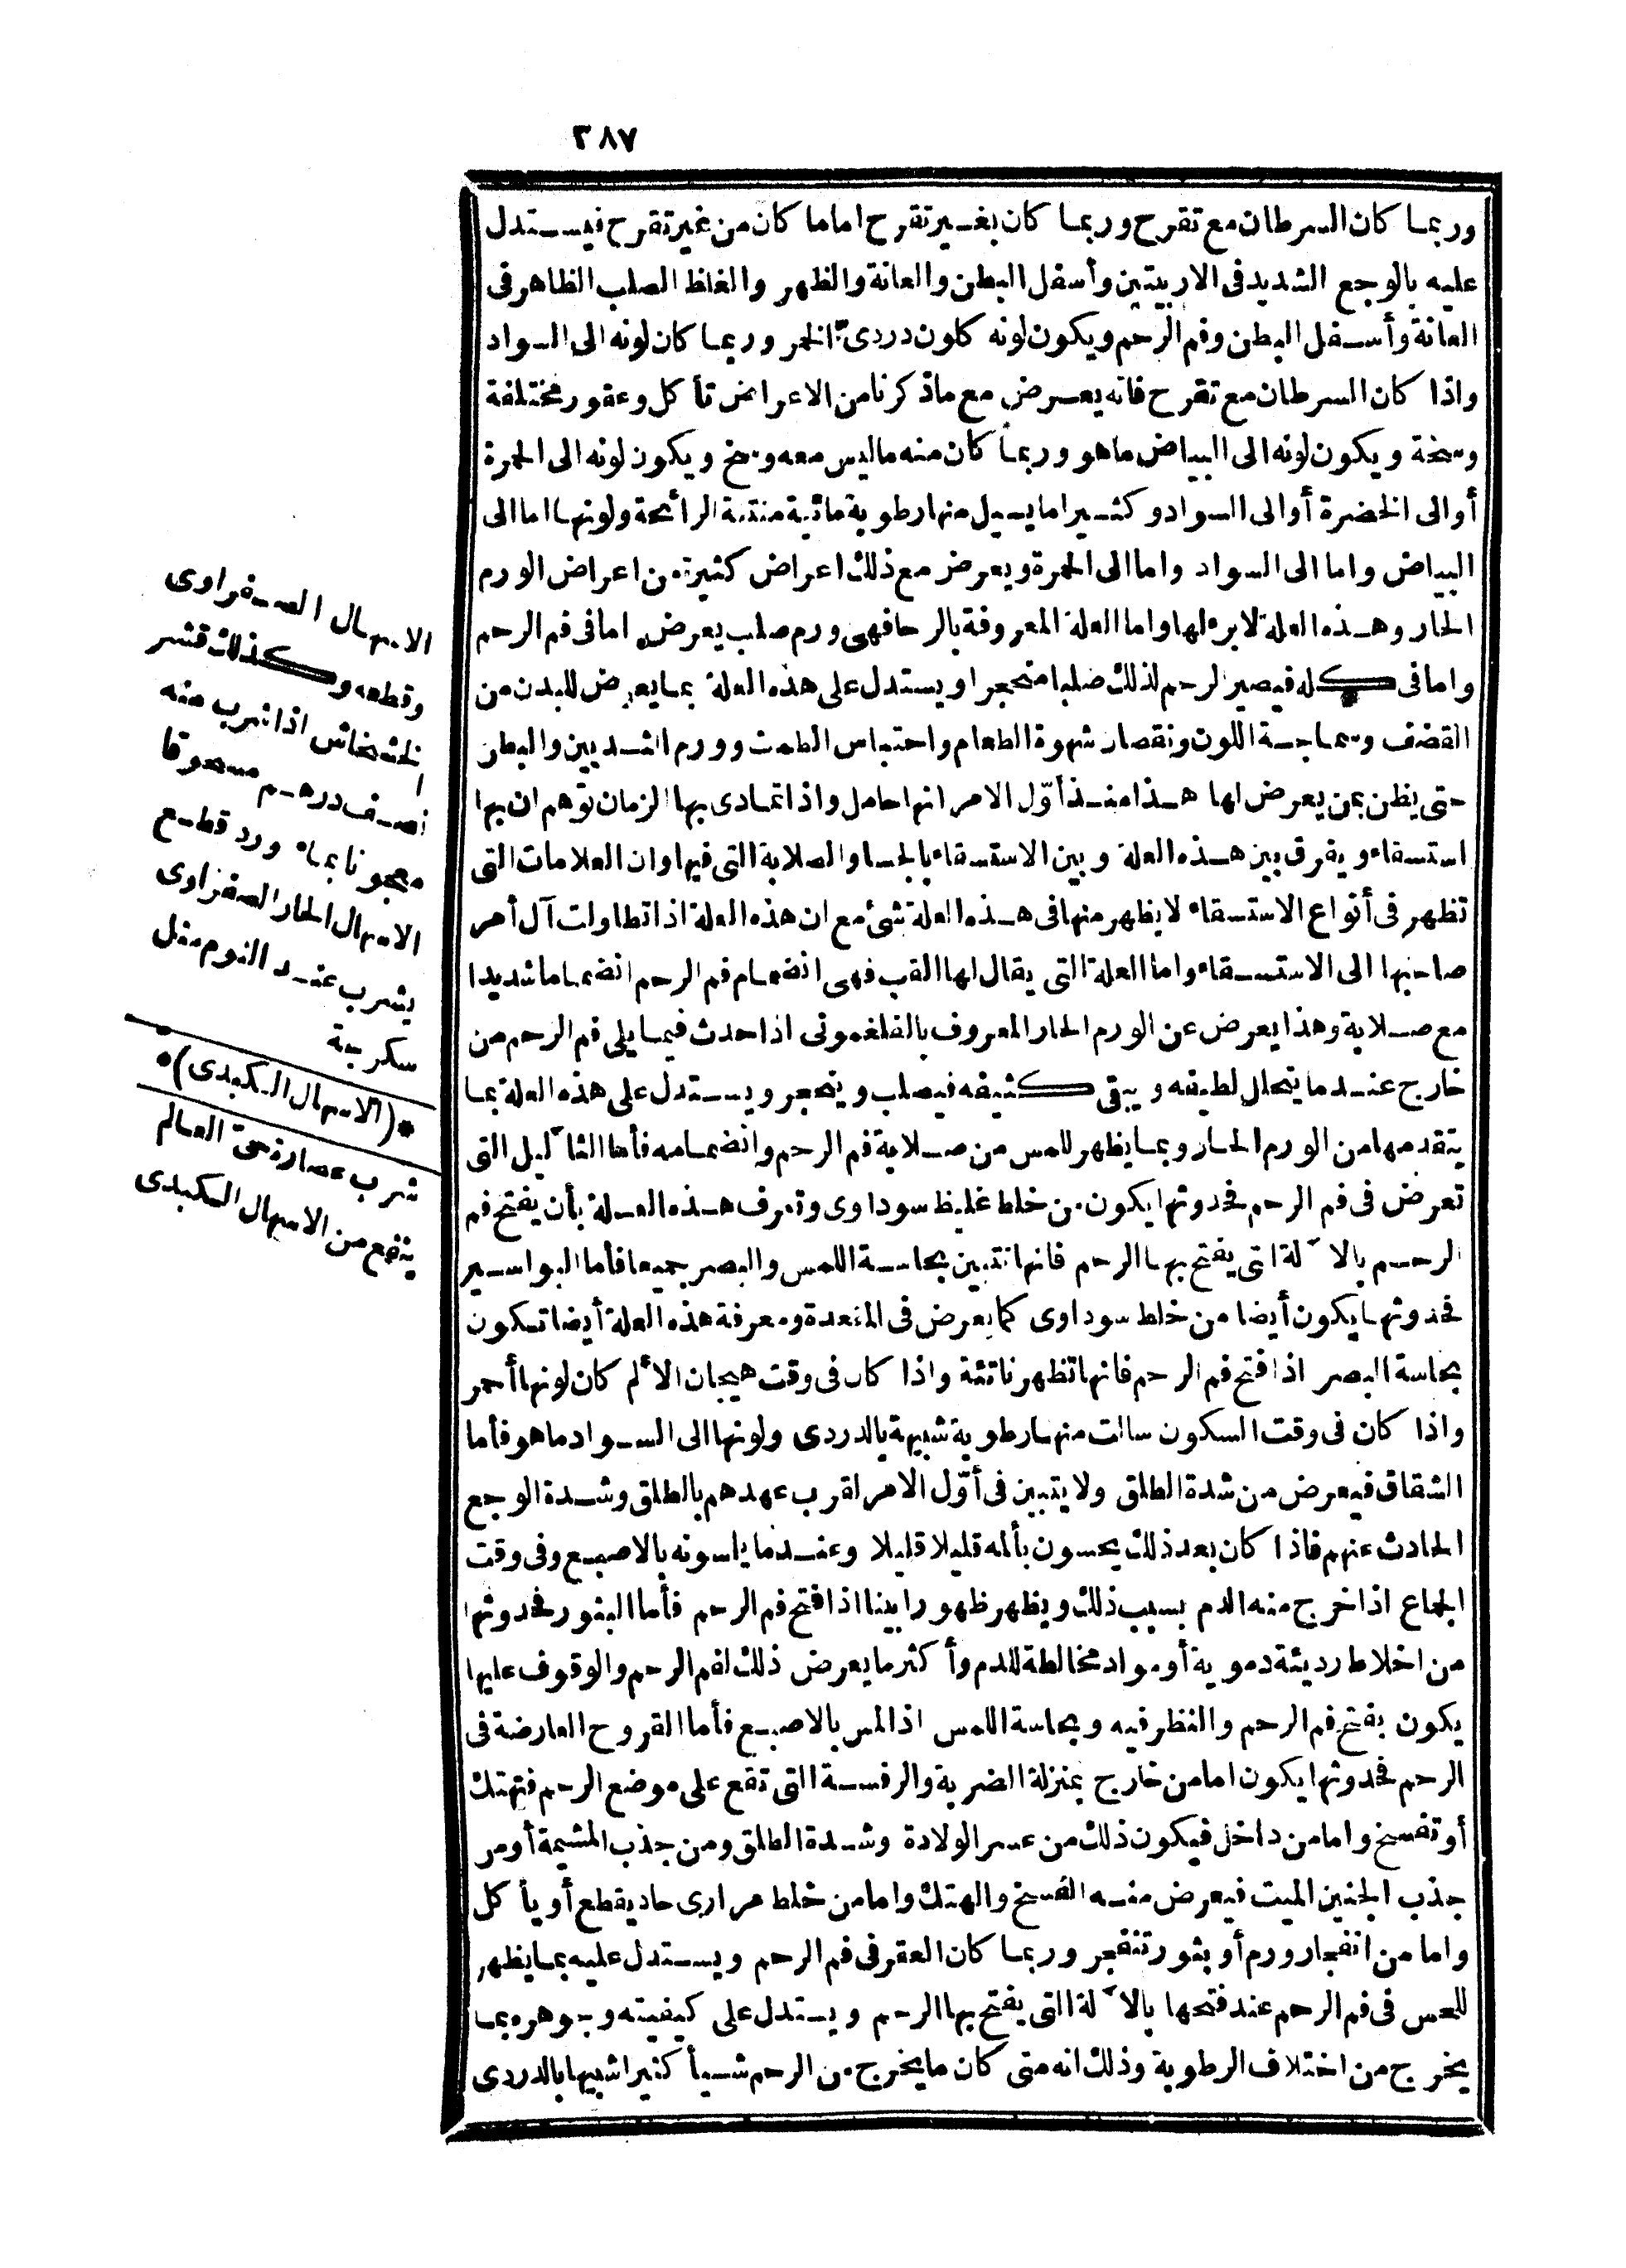 ٣٨٧
وربما كان السرطان مع تقرح وربما كان بغير تقرح اماما كان من غير تقرح فيستدل
عليه بالوجع الشديد فى الاربيتين وأسفل البطن والعانة والظهر والغلظ الصلب الظاهر فى
العانة وأسفل البطن وفم الرحم ويكون لونه كلون دردىّ الخمر وربما كان لونه الى السواد
واذا كان السرطان مع تقرح فانه يعرض مع ماذكرنا من الاعراض تأكل وعقور مختلفة
وسخة ويكون لونه الى البياض ماهو وربما كان منه ماليس معه وسخ ويكون لونه الى الحمرة
أوالى الخضرة أوالى السواد وكثيرا مايسيل منها رطوبة مائية منتنة الرائحة ولونها اما الى
البياض واما الى السواد واما الى الحمرة ويعرض مع ذلك اعراض كثيرة من اعراض الورم
الحار وهذه العلة لابرء لها واما العلة المعروفة بالرحا فهى ورم صلب يعرض اما فى فم الرحم
واما فى كله فيصير الرحم لذلك صلبا متحجرا ويستدل على هذه العلة بما يعرض للبدن من
القضف وسماجة اللون ونقصان شهوة الطعام واحتباس الطمث وورم الثديين والبطن
حتى يظن بمن يعرض لها هذا منذ أوّل الامر انها حامل واذا تمادى بها الزمان توهم ان بها
استسقاء ويفرق بين هذه العلة وبين الاستسقاء بالجسا والصلابة التى فيها وان العلامات التى
تظهر فى أنواع الاستسقاء لا يظهر منها فى هذه العلة شئ مع ان هذه العلة اذا تطاولت آل أمر
صاحبها الى الاستسقاء واما العلة التى يقال لها القب فهى انضمام فم الرحم انضماما شديدا
مع صلابة وهذا يعرض عن الورم الحار المعروف بالفلغمونى اذا حدث فيما يلى فم الرحم من
خارج عندما يتحلل لطيفه ويبقى كثيفه فيصلب ويتحجر ويستدل على هذه العلة بما
يتقدمها من الورم الحار وبما يظهر للمس من صلابة فم الرحم وانضمامه فأما الثآليل التى
تعرض فى فم الرحم فحدوثها يكون من خلط غليظ سوداوى وتعرف هذه العلة بأن يفتح فم
الرحم بالآلة التى يفتح بها الرحم فانها تتبين بحاسة اللمس والبصر جميعا فأما البواسير
فحدوثها يكون أيضا من خلط سوداوى كما يعرض فى المقعدة ومعرفة هذه العلة أيضا تكون
بحاسة البصر اذا فتح فم الرحم فانها تظهر ناتئة واذا كان فى وقت هيجان الألم كان لونها أحمر
واذا كان فى وقت السكون سالت منها رطوبة شبيهة بالدردى ولونها الى السواد ماهو فأما
الشقاق فيعرض من شدة الطلق ولا يتبين فى أوّل الامر لقرب عهدهم بالطلق وشدة الوجع
الحادث عنهم فاذا كان بعد ذلك يحسون بألمه قليلا قليلا وعند ما يلمسونه بالاصبع وفى وقت
الجماع اذا خرج منه الدم بسبب ذلك ويظهر ظهورا بينا اذا فتح فم الرحم فأما البثور فحدوثها
من اخلاط رديئة دموية أو مواد مخالطة للدم وأكثر ما يعرض ذلك لفم الرحم والوقوف عليها
يكون بفتح فم الرحم والنظر فيه وبحاسة اللمس اذا لمس بالاصبع فأما القروح العارضة فى
الرحم فحدوثها يكون اما من خارج بمنزلة الضربة والرفسة التى تقع على موضع الرحم فتهتك
أو تفسخ واما من داخل فيكون ذلك من عسر الولادة وشدة الطلق ومن جذب المشيمة أومن
جذب الجنين الميت فيعرض منه الفسخ والهتك واما من خلط مرارى حاد يقطع أو يأكل
واما من انفجار ورم أو بثور تنفجر وربما كان العقر فى فم الرحم ويستدل عليه بما يظهر
للحس فى فم الرحم عند فتحها بالآلة التى يفتح بها الرحم ويستدل على كيفيته وجوهره بما
يخرج من اختلاف الرطوبة وذلك انه متى كان ما يخرج من الرحم شيأ كثيرا شبيها بالدردى
الاسهال الصفراوى
وقطعه وكذلك قشر
الخشخاش اذا شرب منه
نصف درهم مسحوقا
معجونا بماء ورد قطع
الاسهال الحار الصفراوى
يشرب عند النوم مثل
سكرجة
*(الاسهال الكبدى)*
شرب عصارة حى العالم
ينفع من الاسهال الكبدى